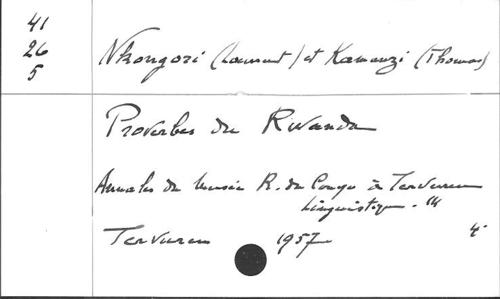 41
26
5
Nkongori (Laurent) et Kamanzi (Thomas)
Proverbes du Rwanda
Annales du Musée R. du Congo à Tervuren
Linguistique. 14
Tervuren 1957 4°